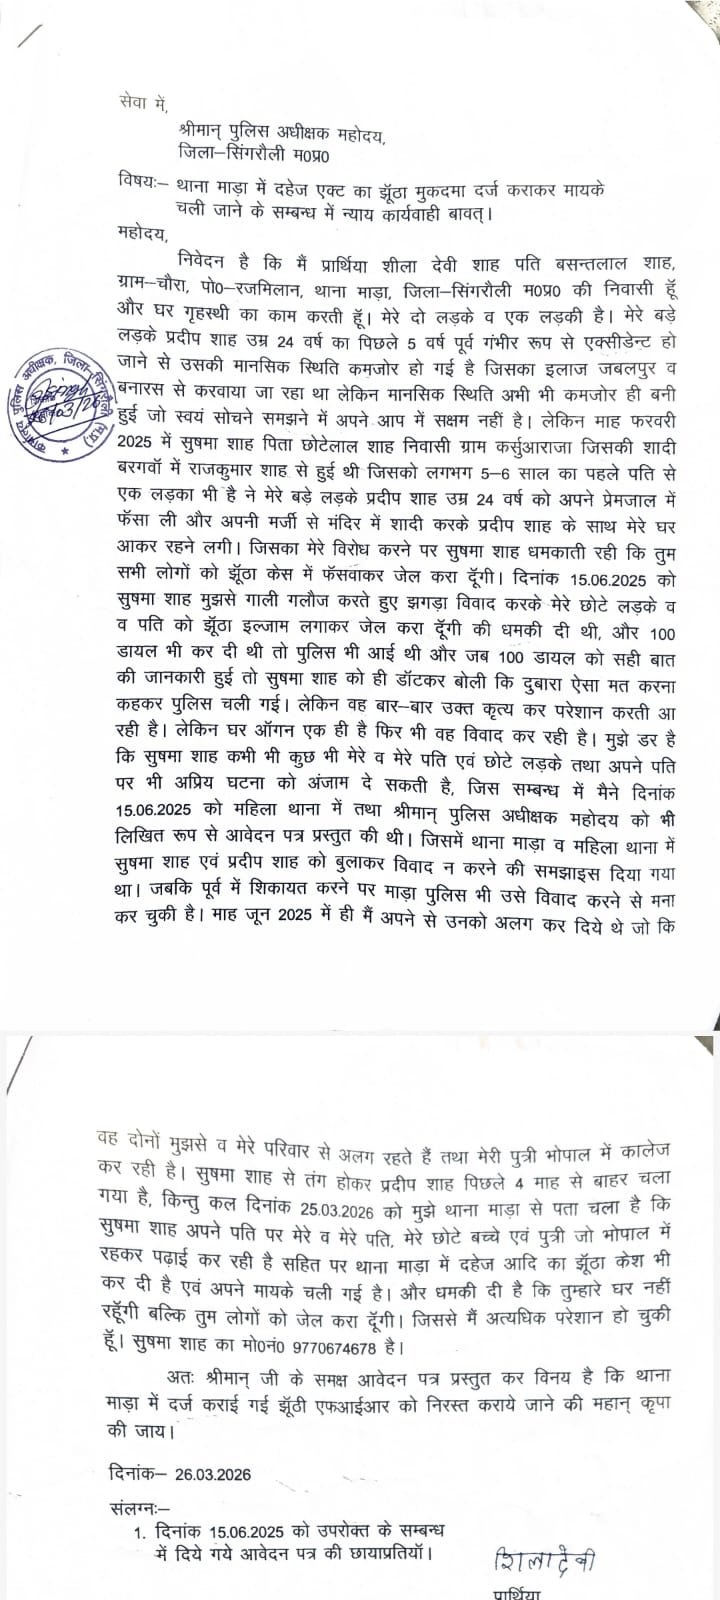 सेवा में,
श्रीमान् पुलिस अधीक्षक महोदय,
जिला–सिंगरौली म0प्र0
विषयः– थाना माड़ा में दहेज एक्ट का झूँठा मुकदमा दर्ज कराकर मायके
चली जाने के सम्बन्ध में न्याय कार्यवाही बावत्।
महोदय,
निवेदन है कि मैं प्रार्थिया शीला देवी शाह पति बसन्तलाल शाह,
ग्राम–चौरा, पो0–रजमिलान, थाना माड़ा, जिला–सिंगरौली म0प्र0 की निवासी हूँ
और घर गृहस्थी का काम करती हूँ। मेरे दो लड़के व एक लड़की है। मेरे बड़े
लड़के प्रदीप शाह उम्र 24 वर्ष का पिछले 5 वर्ष पूर्व गंभीर रूप से एक्सीडेन्ट हो
जाने से उसकी मानसिक स्थिति कमजोर हो गई है जिसका इलाज जबलपुर व
बनारस से करवाया जा रहा था लेकिन मानसिक स्थिति अभी भी कमजोर ही बनी
हुई जो स्वयं सोचने समझने में अपने आप में सक्षम नहीं है। लेकिन माह फरवरी
2025 में सुषमा शाह पिता छोटेलाल शाह निवासी ग्राम कर्सुआराजा जिसकी शादी
बरगवॉ में राजकुमार शाह से हुई थी जिसको लगभग 5–6 साल का पहले पति से
एक लड़का भी है ने मेरे बड़े लड़के प्रदीप शाह उम्र 24 वर्ष को अपने प्रेमजाल में
फॅसा ली और अपनी मर्जी से मंदिर में शादी करके प्रदीप शाह के साथ मेरे घर
आकर रहने लगी। जिसका मेरे विरोध करने पर सुषमा शाह धमकाती रही कि तुम
सभी लोगों को झूँठा केस में फॅसवाकर जेल करा दूँगी। दिनांक 15.06.2025 को
सुषमा शाह मुझसे गाली गलौज करते हुए झगड़ा विवाद करके मेरे छोटे लड़के व
व पति को झूँठा इल्जाम लगाकर जेल करा दूँगी की धमकी दी थी, और 100
डायल भी कर दी थी तो पुलिस भी आई थी और जब 100 डायल को सही बात
की जानकारी हुई तो सुषमा शाह को ही डॉटकर बोली कि दुबारा ऐसा मत करना
कहकर पुलिस चली गई। लेकिन वह बार–बार उक्त कृत्य कर परेशान करती आ
रही है। लेकिन घर ऑगन एक ही है फिर भी वह विवाद कर रही है। मुझे डर है
कि सुषमा शाह कभी भी कुछ भी मेरे व मेरे पति एवं छोटे लड़के तथा अपने पति
पर भी अप्रिय घटना को अंजाम दे सकती है, जिस सम्बन्ध में मैने दिनांक
15.06.2025 को महिला थाना में तथा श्रीमान् पुलिस अधीक्षक महोदय को भी
लिखित रूप से आवेदन पत्र प्रस्तुत की थी। जिसमें थाना माड़ा व महिला थाना में
सुषमा शाह एवं प्रदीप शाह को बुलाकर विवाद न करने की समझाइस दिया गया
था। जबकि पूर्व में शिकायत करने पर माड़ा पुलिस भी उसे विवाद करने से मना
कर चुकी है। माह जून 2025 में ही मैं अपने से उनको अलग कर दिये थे जो कि
कार्यालय पुलिस अधीक्षक, जिला–सिंगरौली (म.प्र.)
वह दोनों मुझसे व मेरे परिवार से अलग रहते हैं तथा मेरी पुत्री भोपाल में कालेज
कर रही है। सुषमा शाह से तंग होकर प्रदीप शाह पिछले 4 माह से बाहर चला
गया है, किन्तु कल दिनांक 25.03.2026 को मुझे थाना माड़ा से पता चला है कि
सुषमा शाह अपने पति पर मेरे व मेरे पति, मेरे छोटे बच्चे एवं पुत्री जो भोपाल में
रहकर पढ़ाई कर रही है सहित पर थाना माड़ा में दहेज आदि का झूँठा केश भी
कर दी है एवं अपने मायके चली गई है। और धमकी दी है कि तुम्हारे घर नहीं
रहूँगी बल्कि तुम लोगों को जेल करा दूँगी। जिससे मैं अत्यधिक परेशान हो चुकी
हूँ। सुषमा शाह का मो0नं0 9770674678 है।
अतः श्रीमान् जी के समक्ष आवेदन पत्र प्रस्तुत कर विनय है कि थाना
माड़ा में दर्ज कराई गई झूँठी एफआईआर को निरस्त कराये जाने की महान् कृपा
की जाय।
दिनांक– 26.03.2026
संलग्नः–
1. दिनांक 15.06.2025 को उपरोक्त के सम्बन्ध
में दिये गये आवेदन पत्र की छायाप्रतियॉ।
शिलादेवी
प्रार्थिया